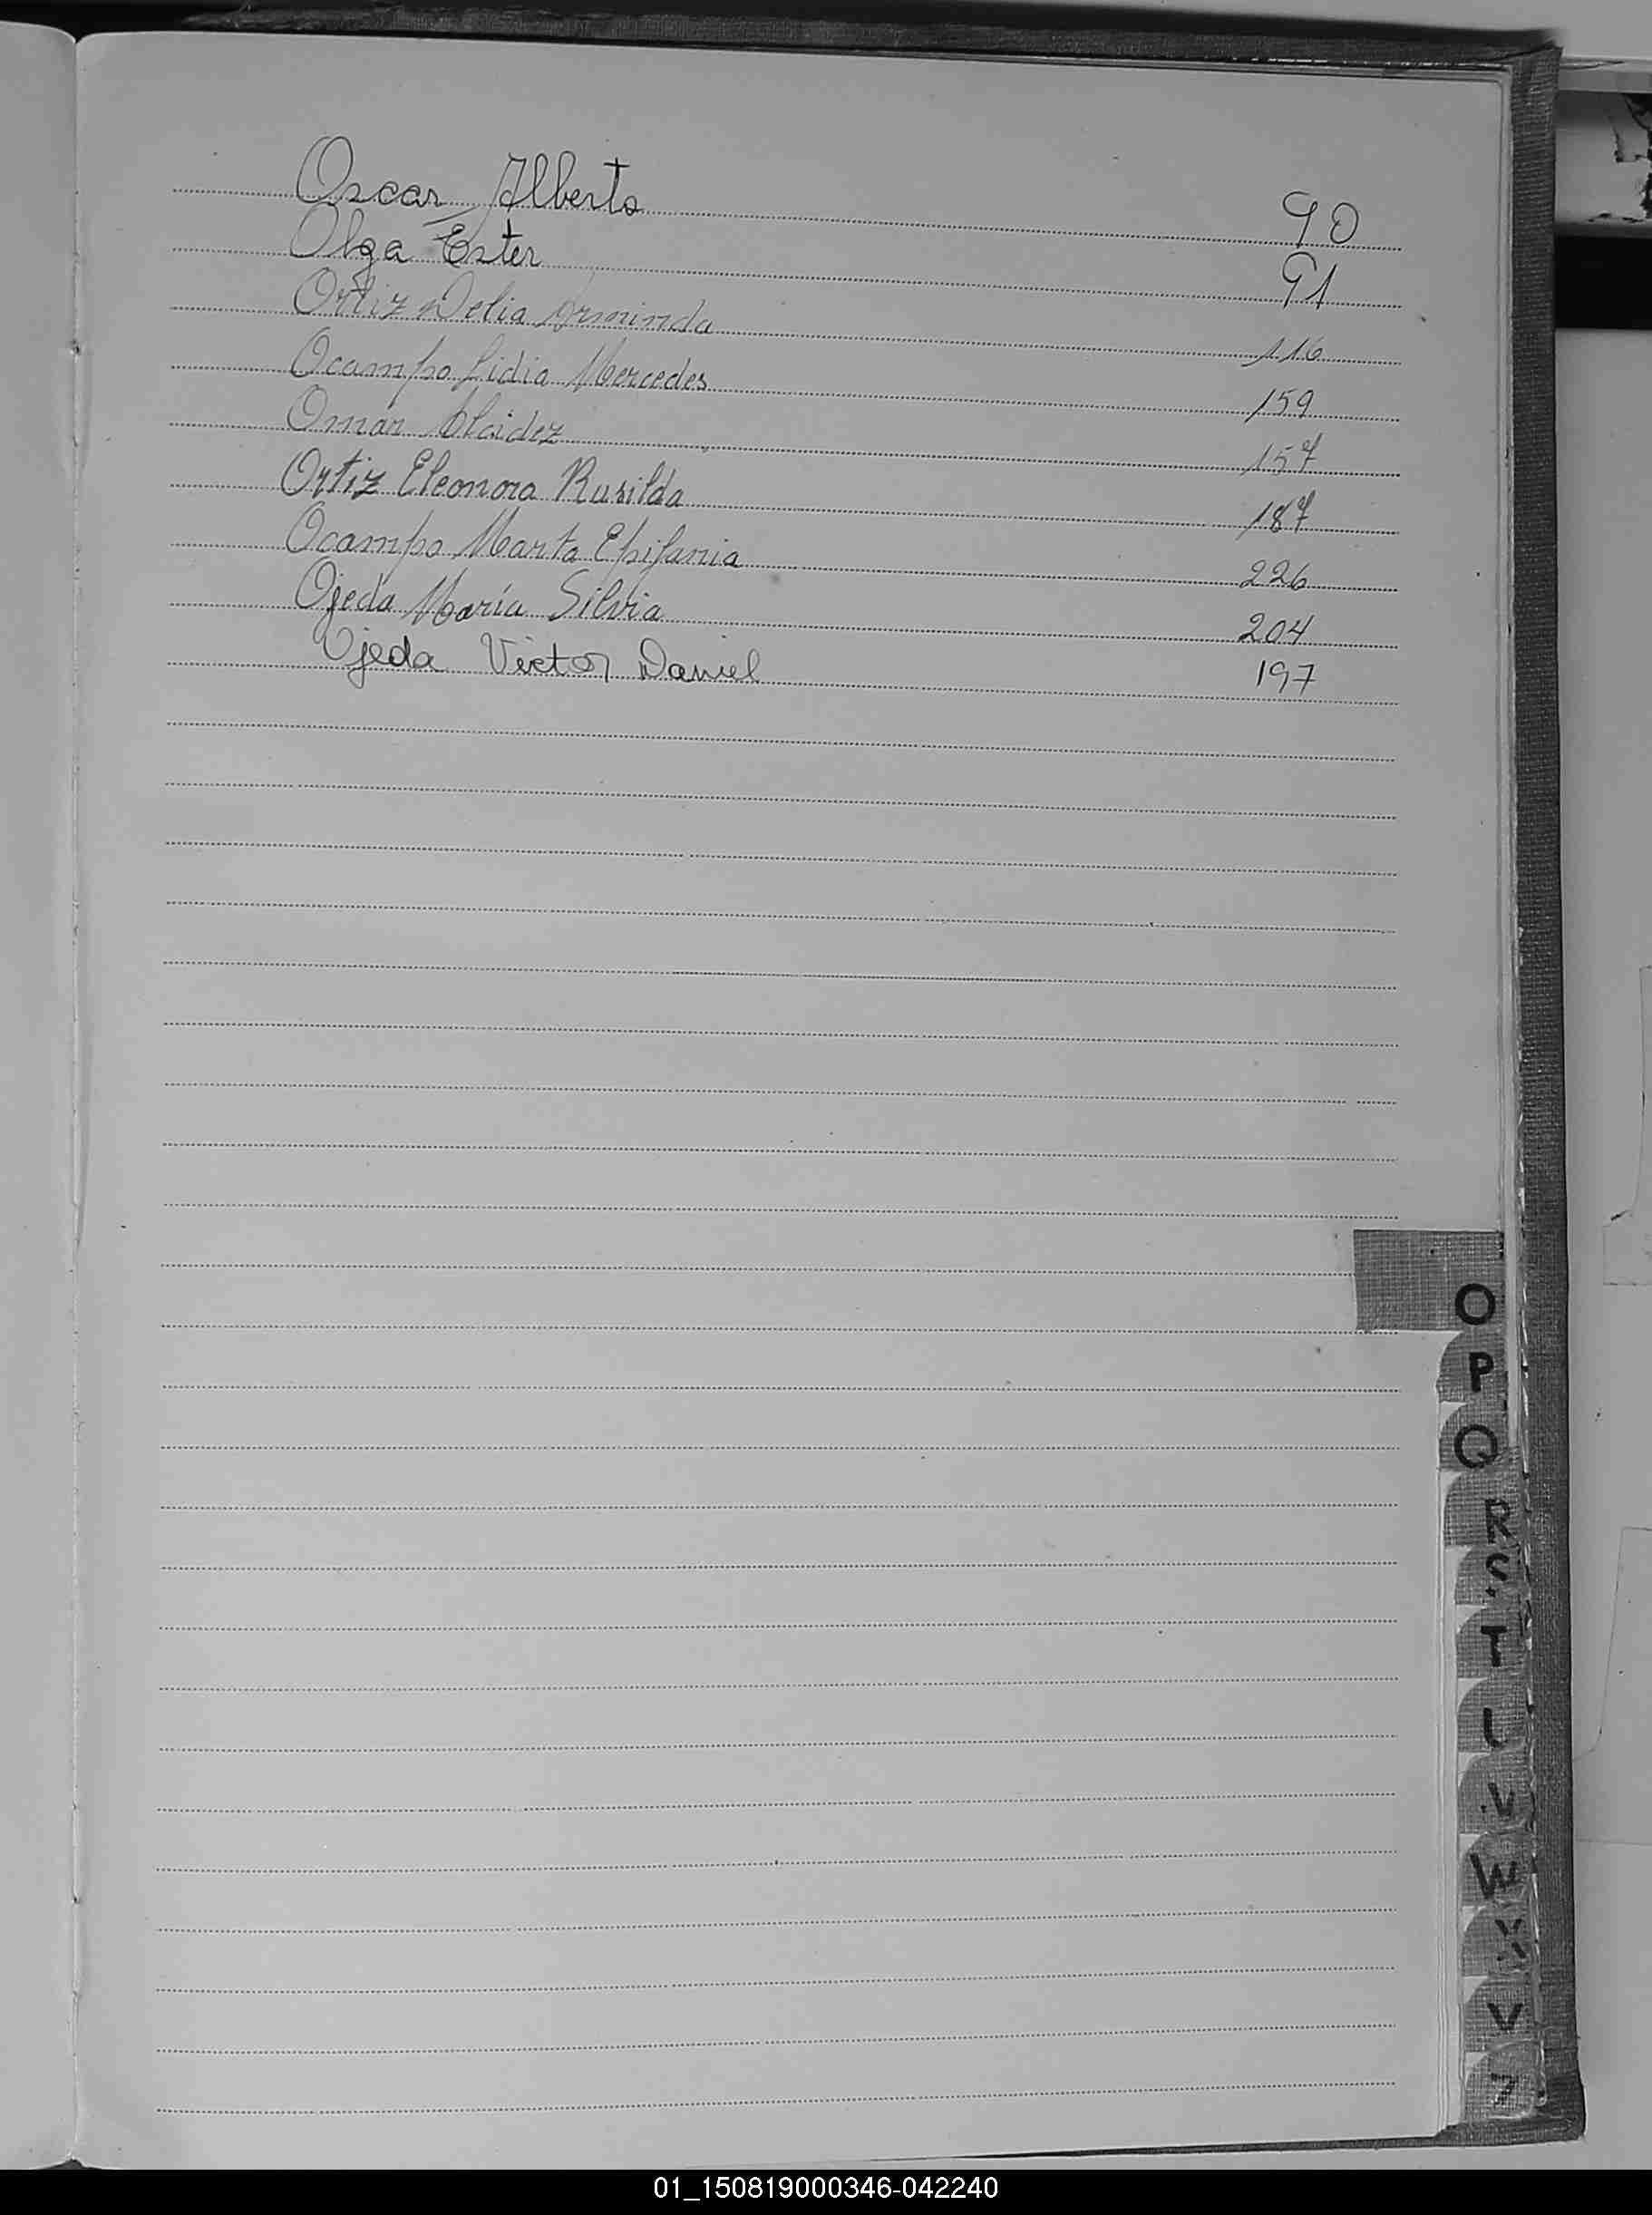 Oscar Alberto 90
Olga Ester 91
Ortiz Delia Arminda 116
Ocampo Lidia Mercedes 159
Omar Alcidez 157
Ortiz Eleonora Rusilda 187
Ocampo Marta Epifania 226
Ojeda María Silvia 204
Ojeda Victor Daniel 197
O
P
Q
R
S
T
V
W
01_150819000346-042240